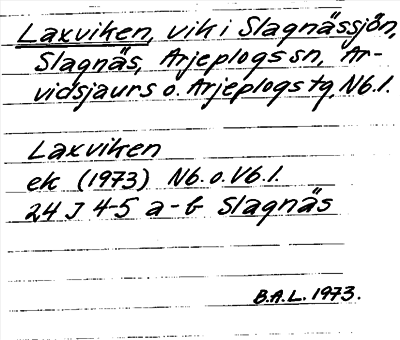 Laxviken, vik i Slagnässjön,
Slagnäs, Arjeplogs sn, Ar-
vidsjaurs o. Arjeplogs tg, Nb.l.
Laxviken
ek (1973) Nb. o. Vb.l.
24 J 4-5 a-b Slagnäs
B.A.L. 1973.